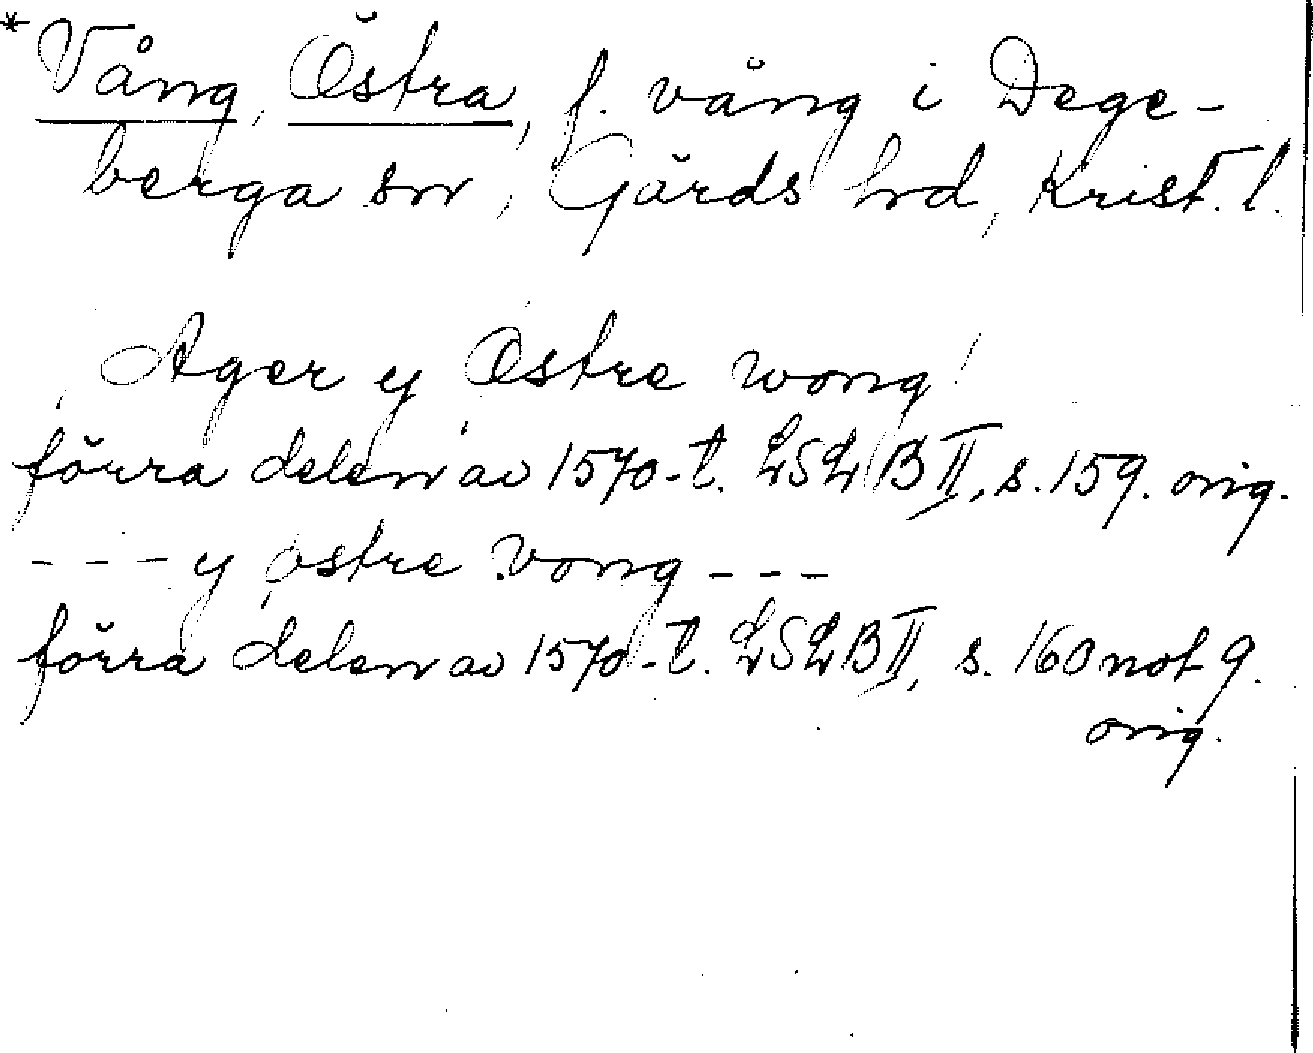 *Vång, Östra, f. vång i Dege-
berga sn, Gärds hd, Krist. l.
Ager y Østre wong
förra delen av 1570-t. LSLB II, s. 159. orig.
- - - y østre vong - - -
förra delen av 1570-t. LSLB II, s. 160 not 9.
orig.